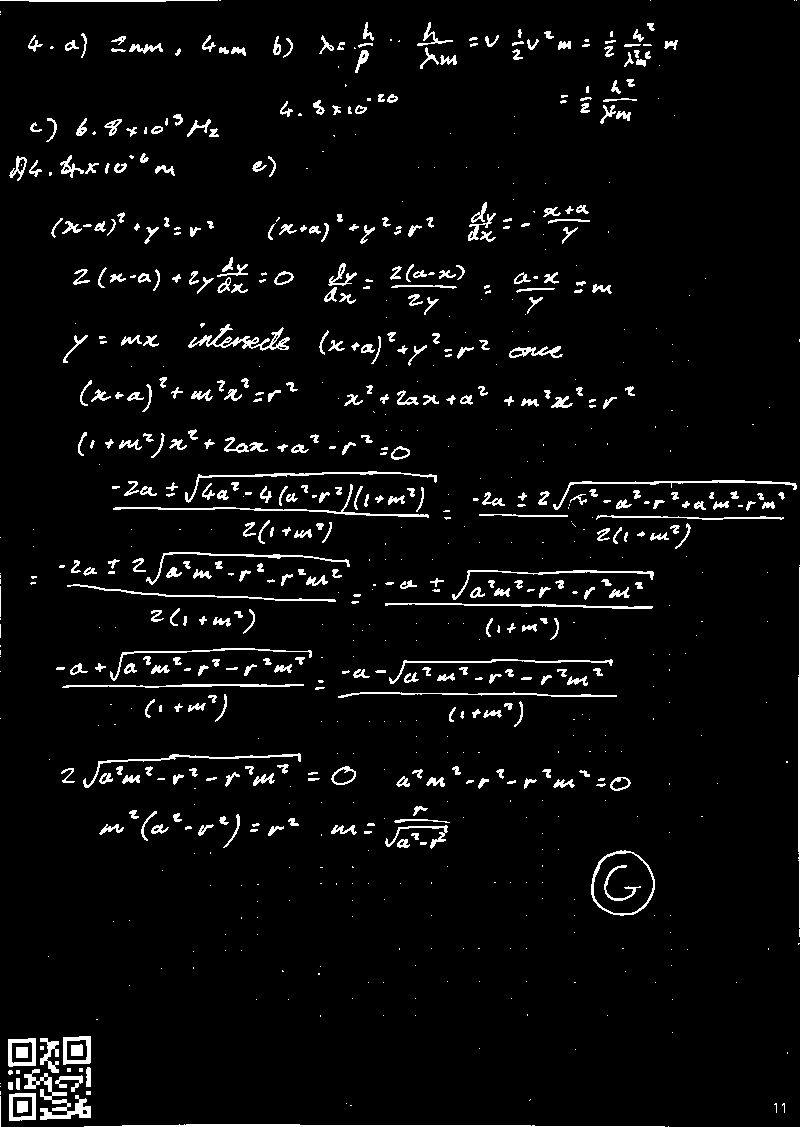 4. a) 2nm, 4nm b) λ = h/p ∴ h/λm = v ½v²m = ½ h²/λ²m² m
4.8×10⁻²⁰ = ½ h²/λ²m
c) 6.8×10¹³ Hz
d) 4.4×10⁻⁶ m e)
(x-a)² + y² = r² (x+a)² + y² = r² dy/dx = - x+a/y
2(x-a) + 2y dy/dx = 0 dy/dx = 2(a-x)/2y = a-x/y = m
y = mx intersects (x+a)² + y² = r² once
(x+a)² + m²x² = r² x² + 2ax + a² + m²x² = r²
(1+m²)x² + 2ax + a² - r² = 0
-2a ± √(4a² - 4(a²-r²)(1+m²)) / 2(1+m²) = -2a ± 2√(r² - a² - r² + a²m² - r²m²) / 2(1+m²)
= -2a ± 2√(a²m² - r² - r²m²) / 2(1+m²) = -a ± √(a²m² - r² - r²m²) / (1+m²)
-a + √(a²m² - r² - r²m²) / (1+m²) = -a - √(a²m² - r² - r²m²) / (1+m²)
2√(a²m² - r² - r²m²) = 0 a²m² - r² - r²m² = 0
m²(a² - r²) = r² m = r/√(a²-r²)
G
11